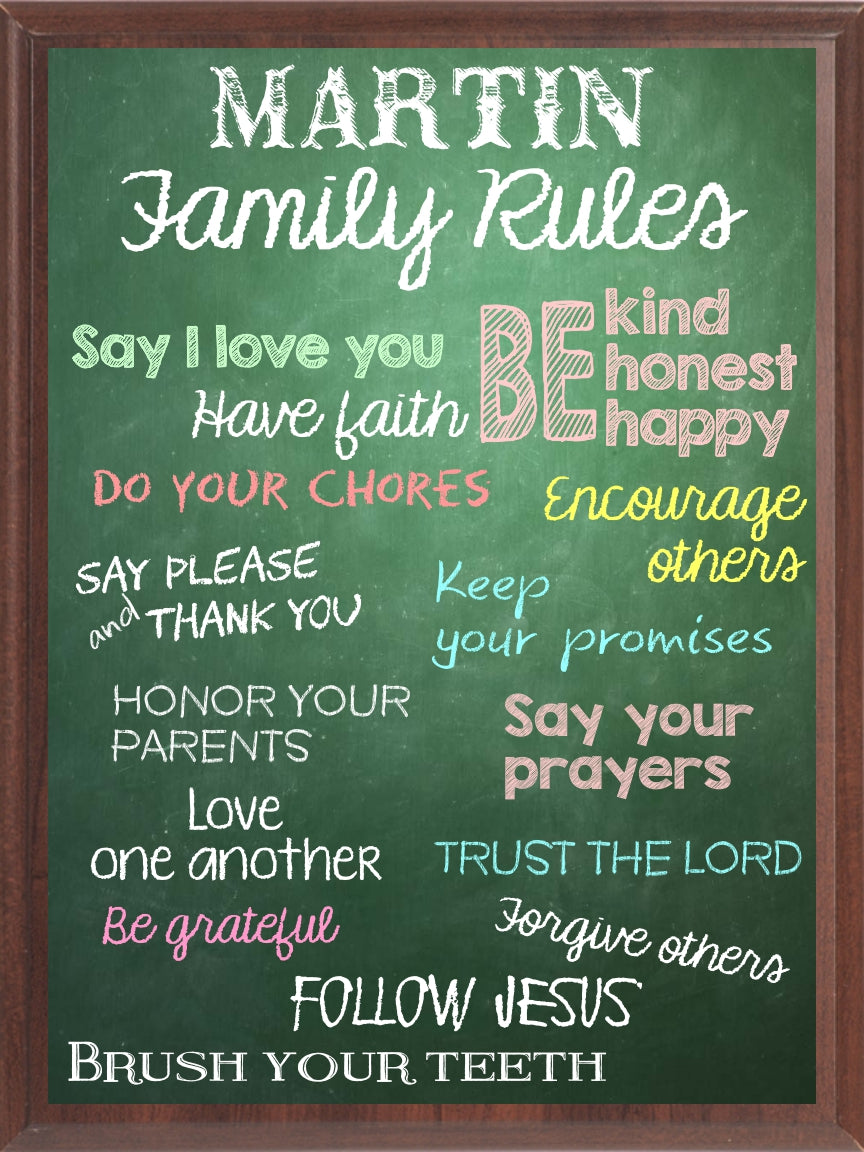 MARTIN
Family Rules
Say I love you
BE kind
honest
happy
Have faith
DO YOUR CHORES
Encourage
others
SAY PLEASE
and THANK YOU
Keep
your promises
HONOR YOUR
PARENTS
Say your
prayers
Love
one another
TRUST THE LORD
Be grateful
Forgive others
FOLLOW JESUS
BRUSH YOUR TEETH